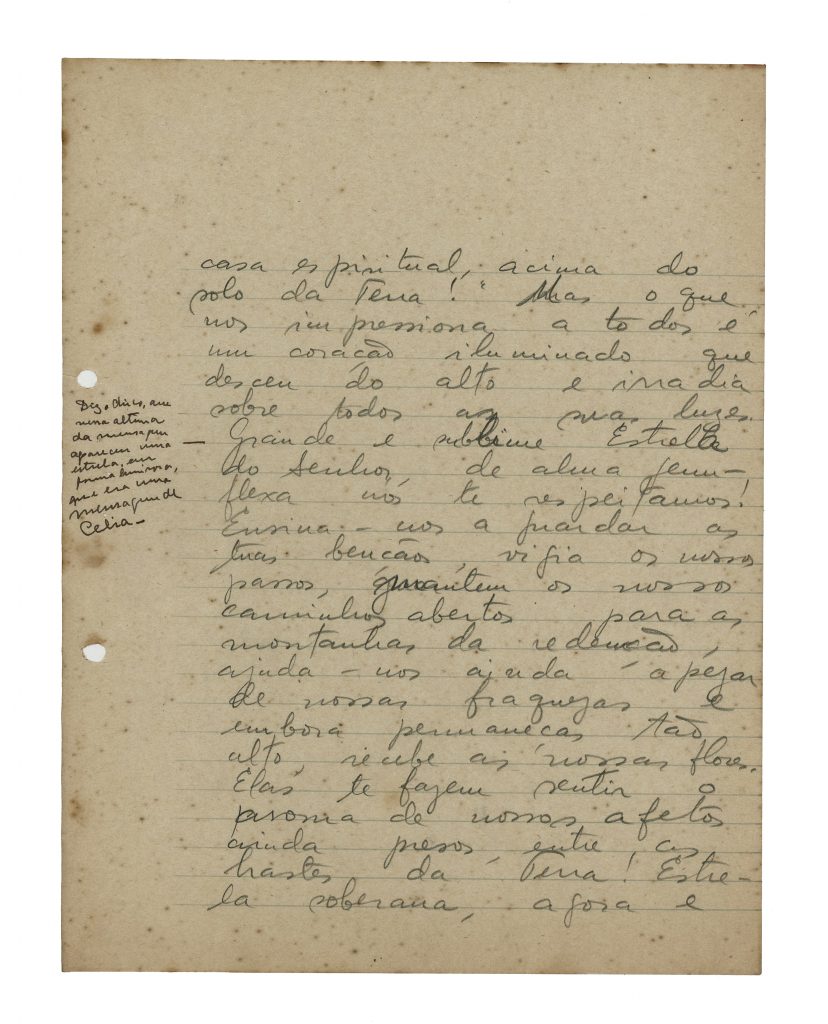 casa espiritual, acima do
solo da Terra!" Mas o que
nos impressiona a todos é
um coração iluminado que
desceu do alto e irradia
sobre todos as suas luzes.
— Grande e sublime Estrella
do Senhor, de alma genu-
flexa nós te respeitamos!
Ensina-nos a guardar as
tuas bençãos, vigia os nossos
passos, mantem os nossos
caminhos abertos para as
montanhas da redenção,
ajuda-nos ainda apezar
de nossas fraquezas e
embora permaneças tão
alto, recebe as nossas flores.
Elas te fazem sentir o
aroma de nossos afetos
ainda presos entre as
hastes da Terra! Estre-
la soberana, agora e
nessa altura
da mensagem
aparecem uma
estrela, em
forma luminosa,
que era uma
mensagem de
Celia —